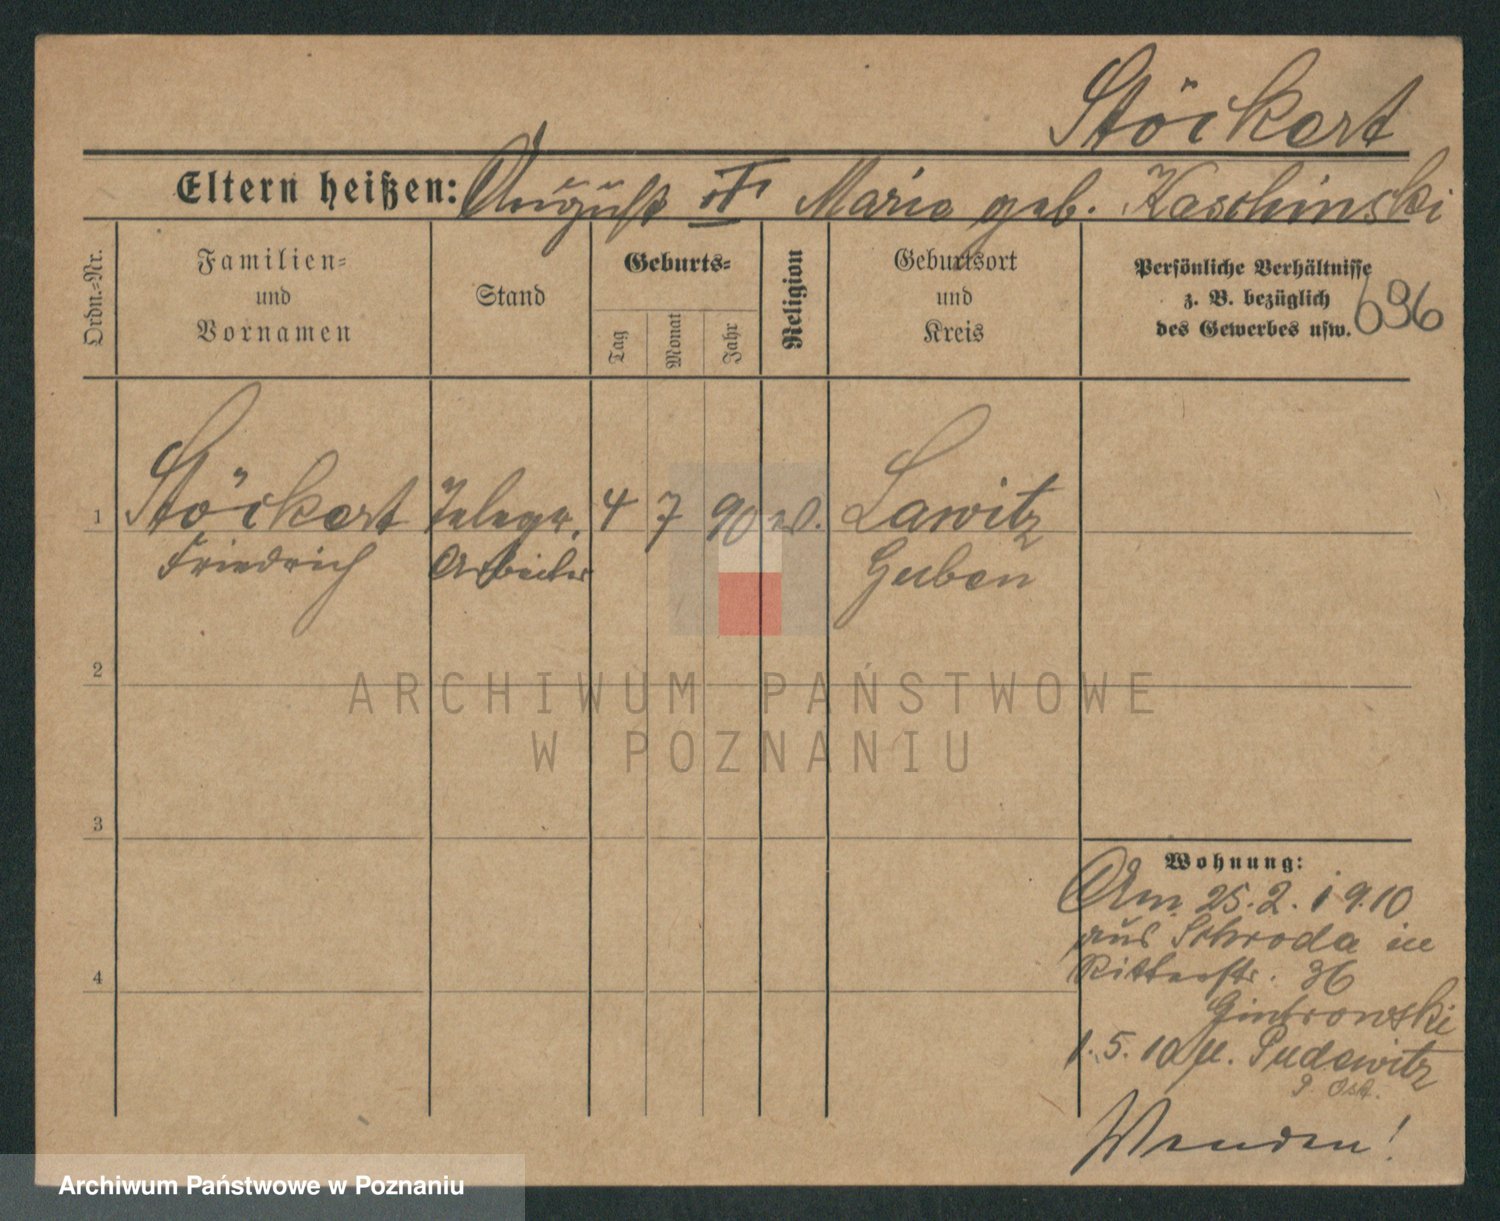 Stöckert
Eltern heißen: August u. Marie geb. Kaschinski
Ordn.-Nr.
Familien- und Vornamen
Stand
Geburts-
Tag
Monat
Jahr
Religion
Geburtsort und Kreis
Persönliche Verhältnisse
z. B. bezüglich
des Gewerbes usw.
696
1 Stöckert Telegr. 4 7 90 ev. Lawitz
Friedrich Arbeiter Guben
2
ARCHIWUM PAŃSTWOWE
W POZNANIU
3
Wohnung:
Am 25.2.1910
aus Schroda in
Ritterstr. 36
4
Gintrowski
1.5.10 n. Pudewitz
P. Ost.
Wenden!
Archiwum Państwowe w Poznaniu